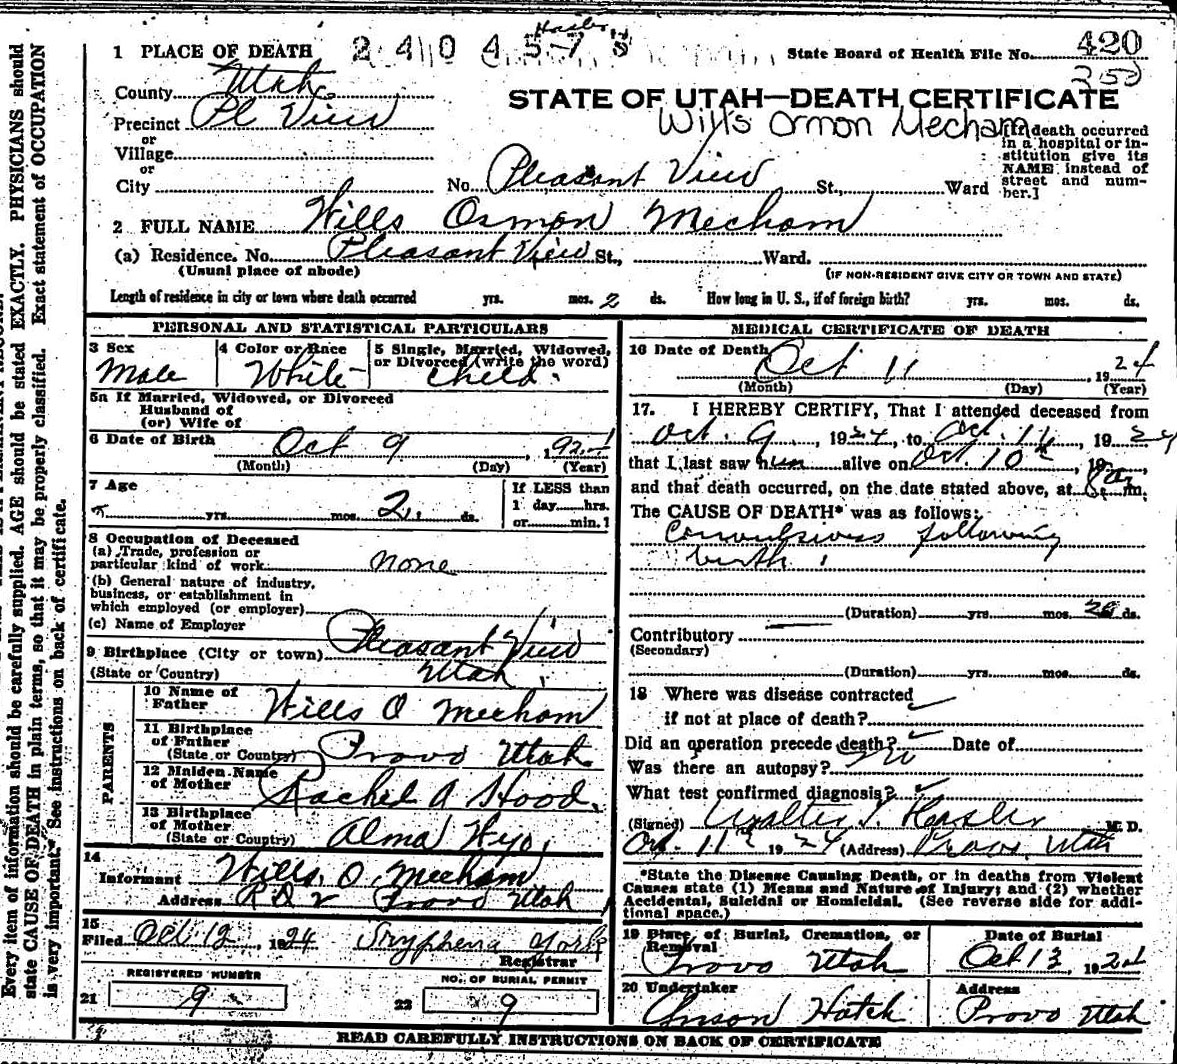 1 PLACE OF DEATH 2404578 State Board of Health File No. 420
County Utah
253
STATE OF UTAH—DEATH CERTIFICATE
Precinct Pl View
Wills Ormon Mecham
or
Village
or
City No. Pleasant View St., Ward
[If death occurred
in a hospital or in-
stitution give its
NAME instead of
street and num-
ber.]
2 FULL NAME Wills Osmon Mecham
(a) Residence. No. Pleasant View St., Ward.
(Usual place of abode) (IF NON-RESIDENT GIVE CITY OR TOWN AND STATE)
Length of residence in city or town where death occurred yrs. mos. 2 ds. How long in U. S., if of foreign birth? yrs. mos. ds.
PERSONAL AND STATISTICAL PARTICULARS
3 Sex 4 Color or Race 5 Single, Married, Widowed,
or Divorced (write the word)
Male White Child.
5a If Married, Widowed, or Divorced
Husband of
(or) Wife of
6 Date of Birth Oct 9, 1924
(Month) (Day) (Year)
7 Age yrs. mos. 2 ds.
If LESS than
1 day hrs.
or min.
8 Occupation of Deceased
(a) Trade, profession or
particular kind of work none
(b) General nature of industry,
business, or establishment in
which employed (or employer)
(c) Name of Employer
9 Birthplace (City or town) Pleasant View
(State or Country) Utah
PARENTS
10 Name of
Father Wills O Mecham
11 Birthplace
of Father
(State or Country) Provo Utah
12 Maiden Name
of Mother Rachel A Hood
13 Birthplace
of Mother
(State or Country) Alma Wyo.
14
Informant Wills O Mecham
Address R D 2 Provo Utah
15
Filed Oct 12, 1924 Tryphena York
Registrar
REGISTERED NUMBER NO. OF BURIAL PERMIT
21 9 22 9
MEDICAL CERTIFICATE OF DEATH
16 Date of Death Oct 11, 1924
(Month) (Day) (Year)
17. I HEREBY CERTIFY, That I attended deceased from
Oct. 9, 1924, to Oct. 11, 1924
that I last saw him alive on Oct. 10th, 19
and that death occurred, on the date stated above, at 8 a m.
The CAUSE OF DEATH* was as follows:
Convulsions following
birth.
(Duration) yrs. mos. ds.
Contributory
(Secondary)
(Duration) yrs. mos. ds.
18 Where was disease contracted
if not at place of death?
Did an operation precede death? no Date of
Was there an autopsy?
What test confirmed diagnosis?
(Signed) Walter T. Hasler M. D.
Oct. 11th 1924 (Address) Provo, Utah
*State the Disease Causing Death, or in deaths from Violent
Causes state (1) Means and Nature of Injury; and (2) whether
Accidental, Suicidal or Homicidal. (See reverse side for addi-
tional space.)
19 Place of Burial, Cremation, or
Removal
Date of Burial
Provo Utah Oct 13, 1924
20 Undertaker Address
Anson Hatch Provo Utah
READ CAREFULLY INSTRUCTIONS ON BACK OF CERTIFICATE
Every item of information should be carefully supplied. AGE should be stated EXACTLY. PHYSICIANS should
state CAUSE OF DEATH in plain terms, so that it may be properly classified. Exact statement of OCCUPATION
is very important. See instructions on back of certificate.